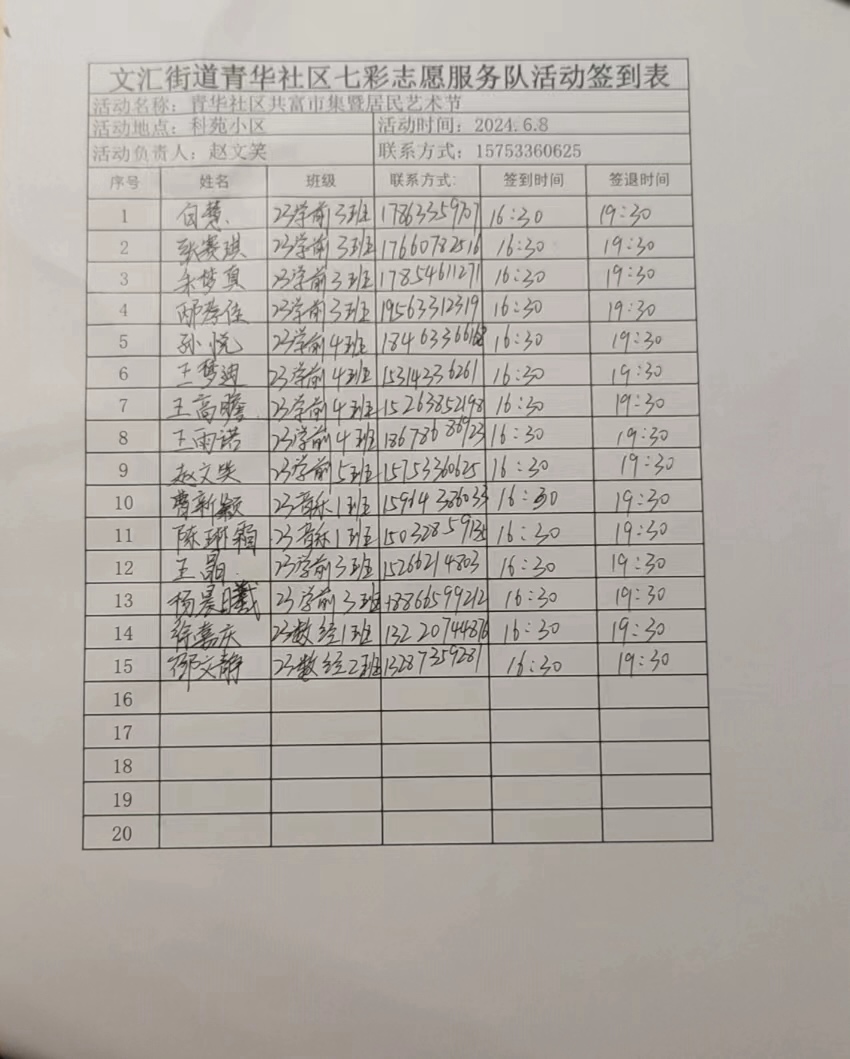 文汇街道青华社区七彩志愿服务队活动签到表
活动名称：青华社区共富市集暨居民艺术节
活动地点：科苑小区 活动时间：2024.6.8
活动负责人：赵文笑 联系方式：15753360625
序号 姓名 班级 联系方式： 签到时间 签退时间
1 白慧 23学前3班 17863359707 16:30 19:30
2 张赛琪 23学前3班 17660782516 16:30 19:30
3 朱梦真 23学前3班 17854611271 16:30 19:30
4 邴孝佳 23学前3班 19563312319 16:30 19:30
5 孙悦 23学前4班 16:30 19:30
6 王梦迪 23学前4班 15314336261 16:30 19:30
7 王高瞻 23学前4班 15263852198 16:30 19:30
8 王雨诺 23学前4班 18678686923 16:30 19:30
9 赵文笑 23学前5班 15753360625 16:30 19:30
10 曹新颖 23音乐1班 16:30 19:30
11 陈琳霜 23音乐1班 16:30 19:30
12 王晶 23学前3班 15266214803 16:30 19:30
13 杨晨曦 23学前3班 18866599212 16:30 19:30
14 徐嘉庆 23数经1班 13220744876 16:30 19:30
15 邵文静 23数经2班 13287359281 16:30 19:30
16
17
18
19
20